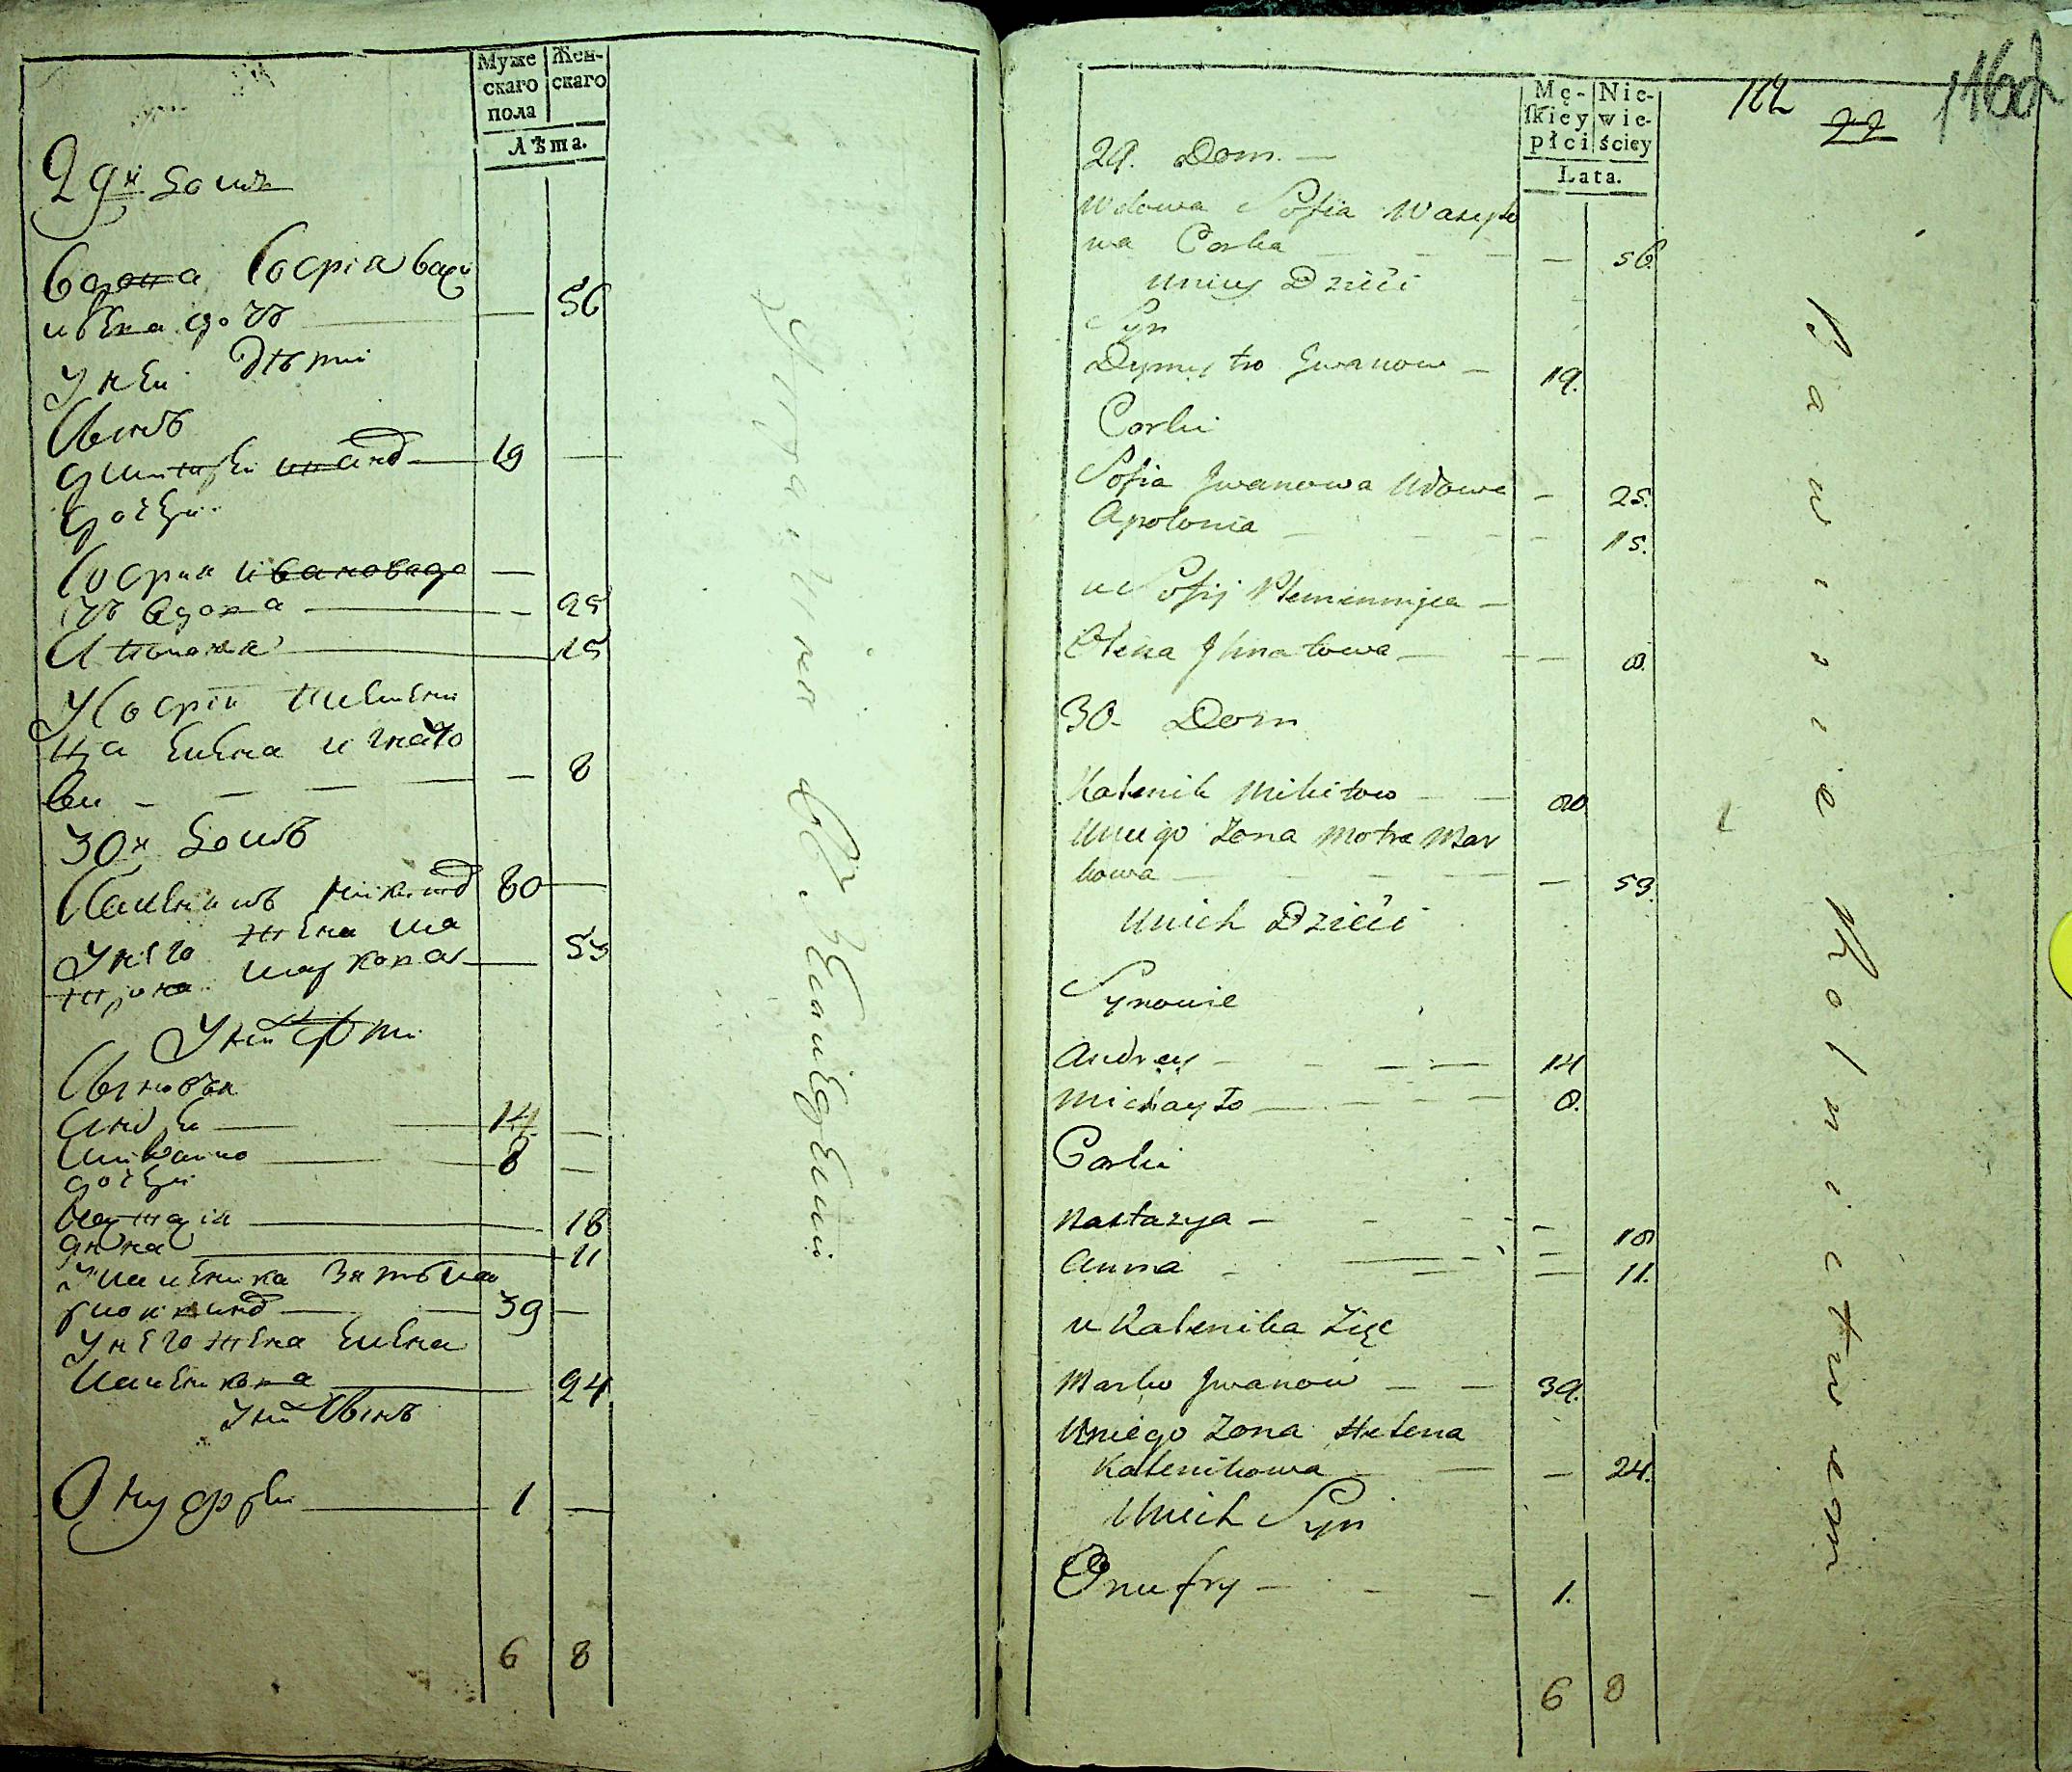 Муже
скаго
пола
Жен-
скаго
Лѣта.
29й домъ
вдова Софія васи
лѣва дочь — 56
У неи дѣти
Сынъ
дмитрей иванов — 19 —
дочери
София Иванова до
чь вдова — 25
Аполония — 15
У Софіи племени
ца Елена игнато
ва — — 8
30й домъ
Каленикъ Микитов 80 —
У него жена мо
трона маркова — 53
У них дѣти
Сыновья
Андрей — 14 —
Михайло — 8 —
дочери
Настасия — 18
Анна — 11
У каленика зять ма
рко иванов — 39 —
У него жена Елена
каленикова — 24
У них Сынъ
Онуфрей — 1 —
6 8
Мę-
skiey
płci
Nie-
wie-
ściey
Lata.
122
22
29. Dom. —
Wdowa Sofia Wasyło
wa Corka — — — 56.
Uniey Dzieci
Syn
Dymytro Jwanow — 19.
Corki
Sofia Jwanowa Udowa — 25.
Apolonia — — — 15.
u Sofij Plemennijca —
Olena Jhnatowa — — — 8.
30. Dom
Kalenik Mikitow — — 80
Uniego Zona Motra Mar
kowa — — — — 53.
Unich Dzieci
Synowie
Andrey — — — — 14
Michayło — — — — 8.
Corki
Nastazya — — — — 18
Anna — — — — 11.
u Kalenika Zięc
Marko Jwanow — — 39.
Uniego Zona Helena
Kalenikowa — — — 24.
Unich Syn
Onufry — — — 1.
6 8
Bawi sie Rolnictwem